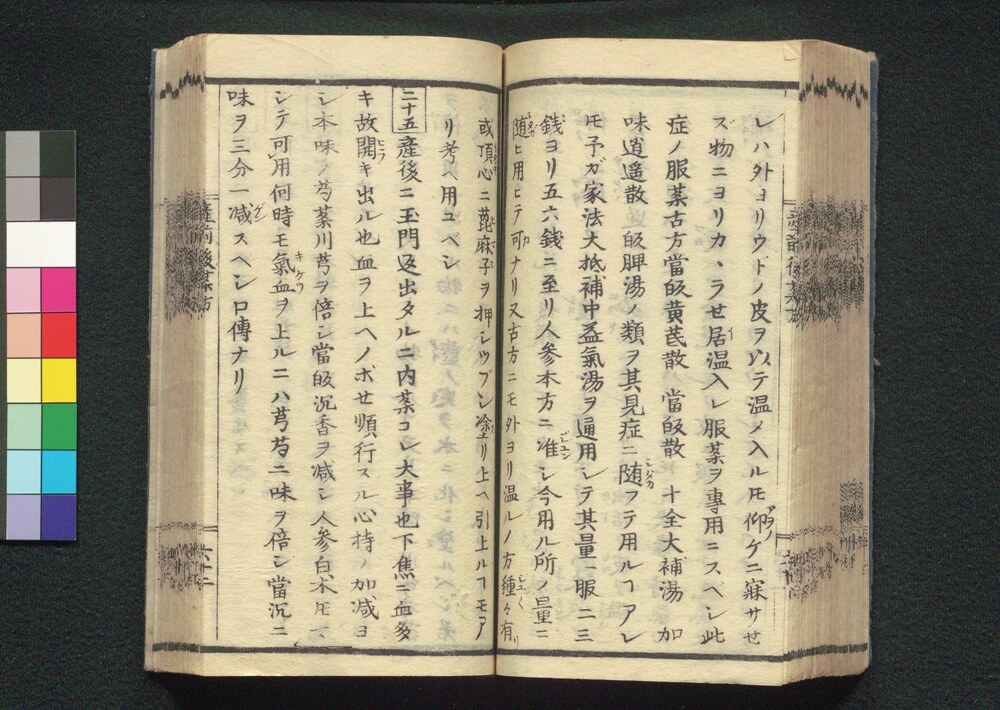 レハ外ヨリウドノ皮ヲ以テ温メ入ルヒ仰ケニ寐サせ
ズ物ニヨリカヽラせ居温入レ服薬ヲ專用ニスヘシ此
症ノ服薬古方當皈黄芪散當皈散十全大補湯加
味逍遥散皈脾湯ノ類ヲ其見症ニ随フテ用ルヿアレ
𪜈予ガ家法大抵補中益氣湯ヲ通用シテ其量一服二三
錢ヨリ五六錢ニ至リ人参本方ニ准シ今用ル所ノ量ニ
随ヒ用ヒテ可ナリ又古方ニモ外ヨリ温ルノ方種々有
或頂心ニ蓖麻子ヲ押シツブシ塗リ上ヘ引上ルヿモア
リ考ヘ用ユベシ
二十五産後ニ玉門返出タルニ内薬コレ大事也下焦ニ血多
キ故開キ出ル也血ヲ上ヘノボせ順行スル心持ノ加减ヨ
シ本味ノ芎薬川芎ヲ倍シ當皈沉香ヲ减シ人参白朮𪜈
シテ可用何時モ氣血ヲ上ルニハ芎芍二味ヲ倍シ當沉二
味ヲ三分一减スヘシ口傳ナリ
産前後薬方
六十二